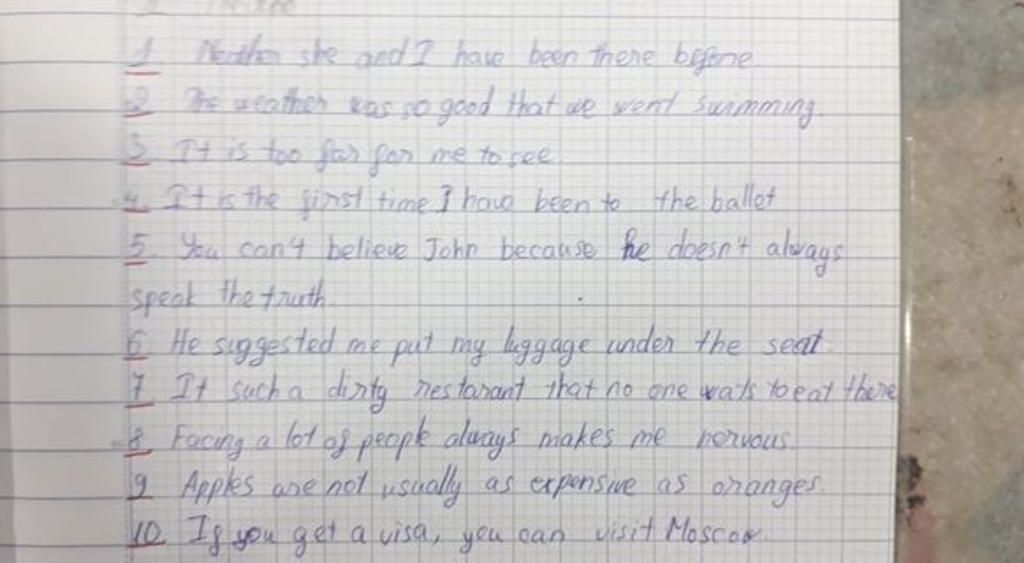 1 Neither she and I have been there before
2 The weather was so good that we went swimming.
3 It is too far for me to see
4. It is the first time I have been to the ballet
5 You can't believe John because he doesn't always
speak the truth.
6 He suggested me put my luggage under the seat.
7 It such a dirty restarant that no one wats to eat there
8 Facing a lot of people always makes me nervous.
9 Apples are not usually as expensive as oranges.
10 If you get a visa, you can visit Moscow.